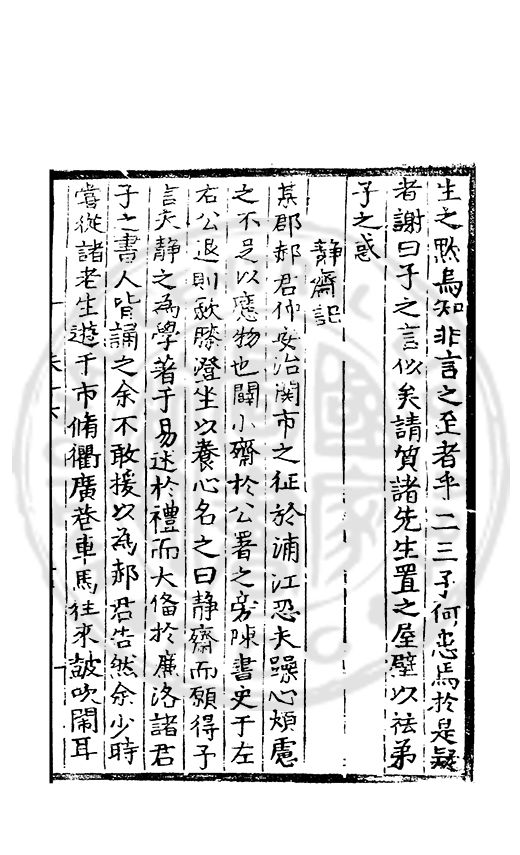 生之黙焉知非言之至者乎二三子何惑焉於是疑
者謝曰子之言似矣請質諸先生置之屋壁以祛弟
子之惑
靜齋記
某郡郝君仲安治関市之征於浦江恐夫躁心煩慮
之不足以應物也闢小齋於公署之旁陳書史于左
右公退則歛膝澄坐以養心名之曰静齋而願得予
言夫静之為學著于易述於禮而大偹於㢘洛諸君
子之書人皆誦之余不敢援以為郝君告然余少時
嘗從諸老生遊千市脩衢廣巷車馬往來鼓吹鬧耳